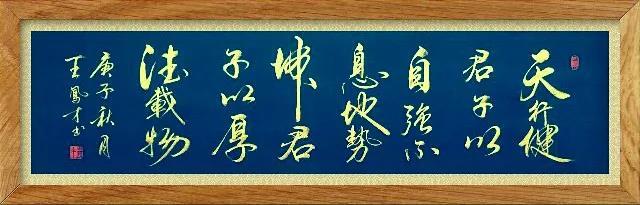 天行健
君子以
自强不
息地勢
坤君
子以厚
德載物
庚子秋月
王鳳才书